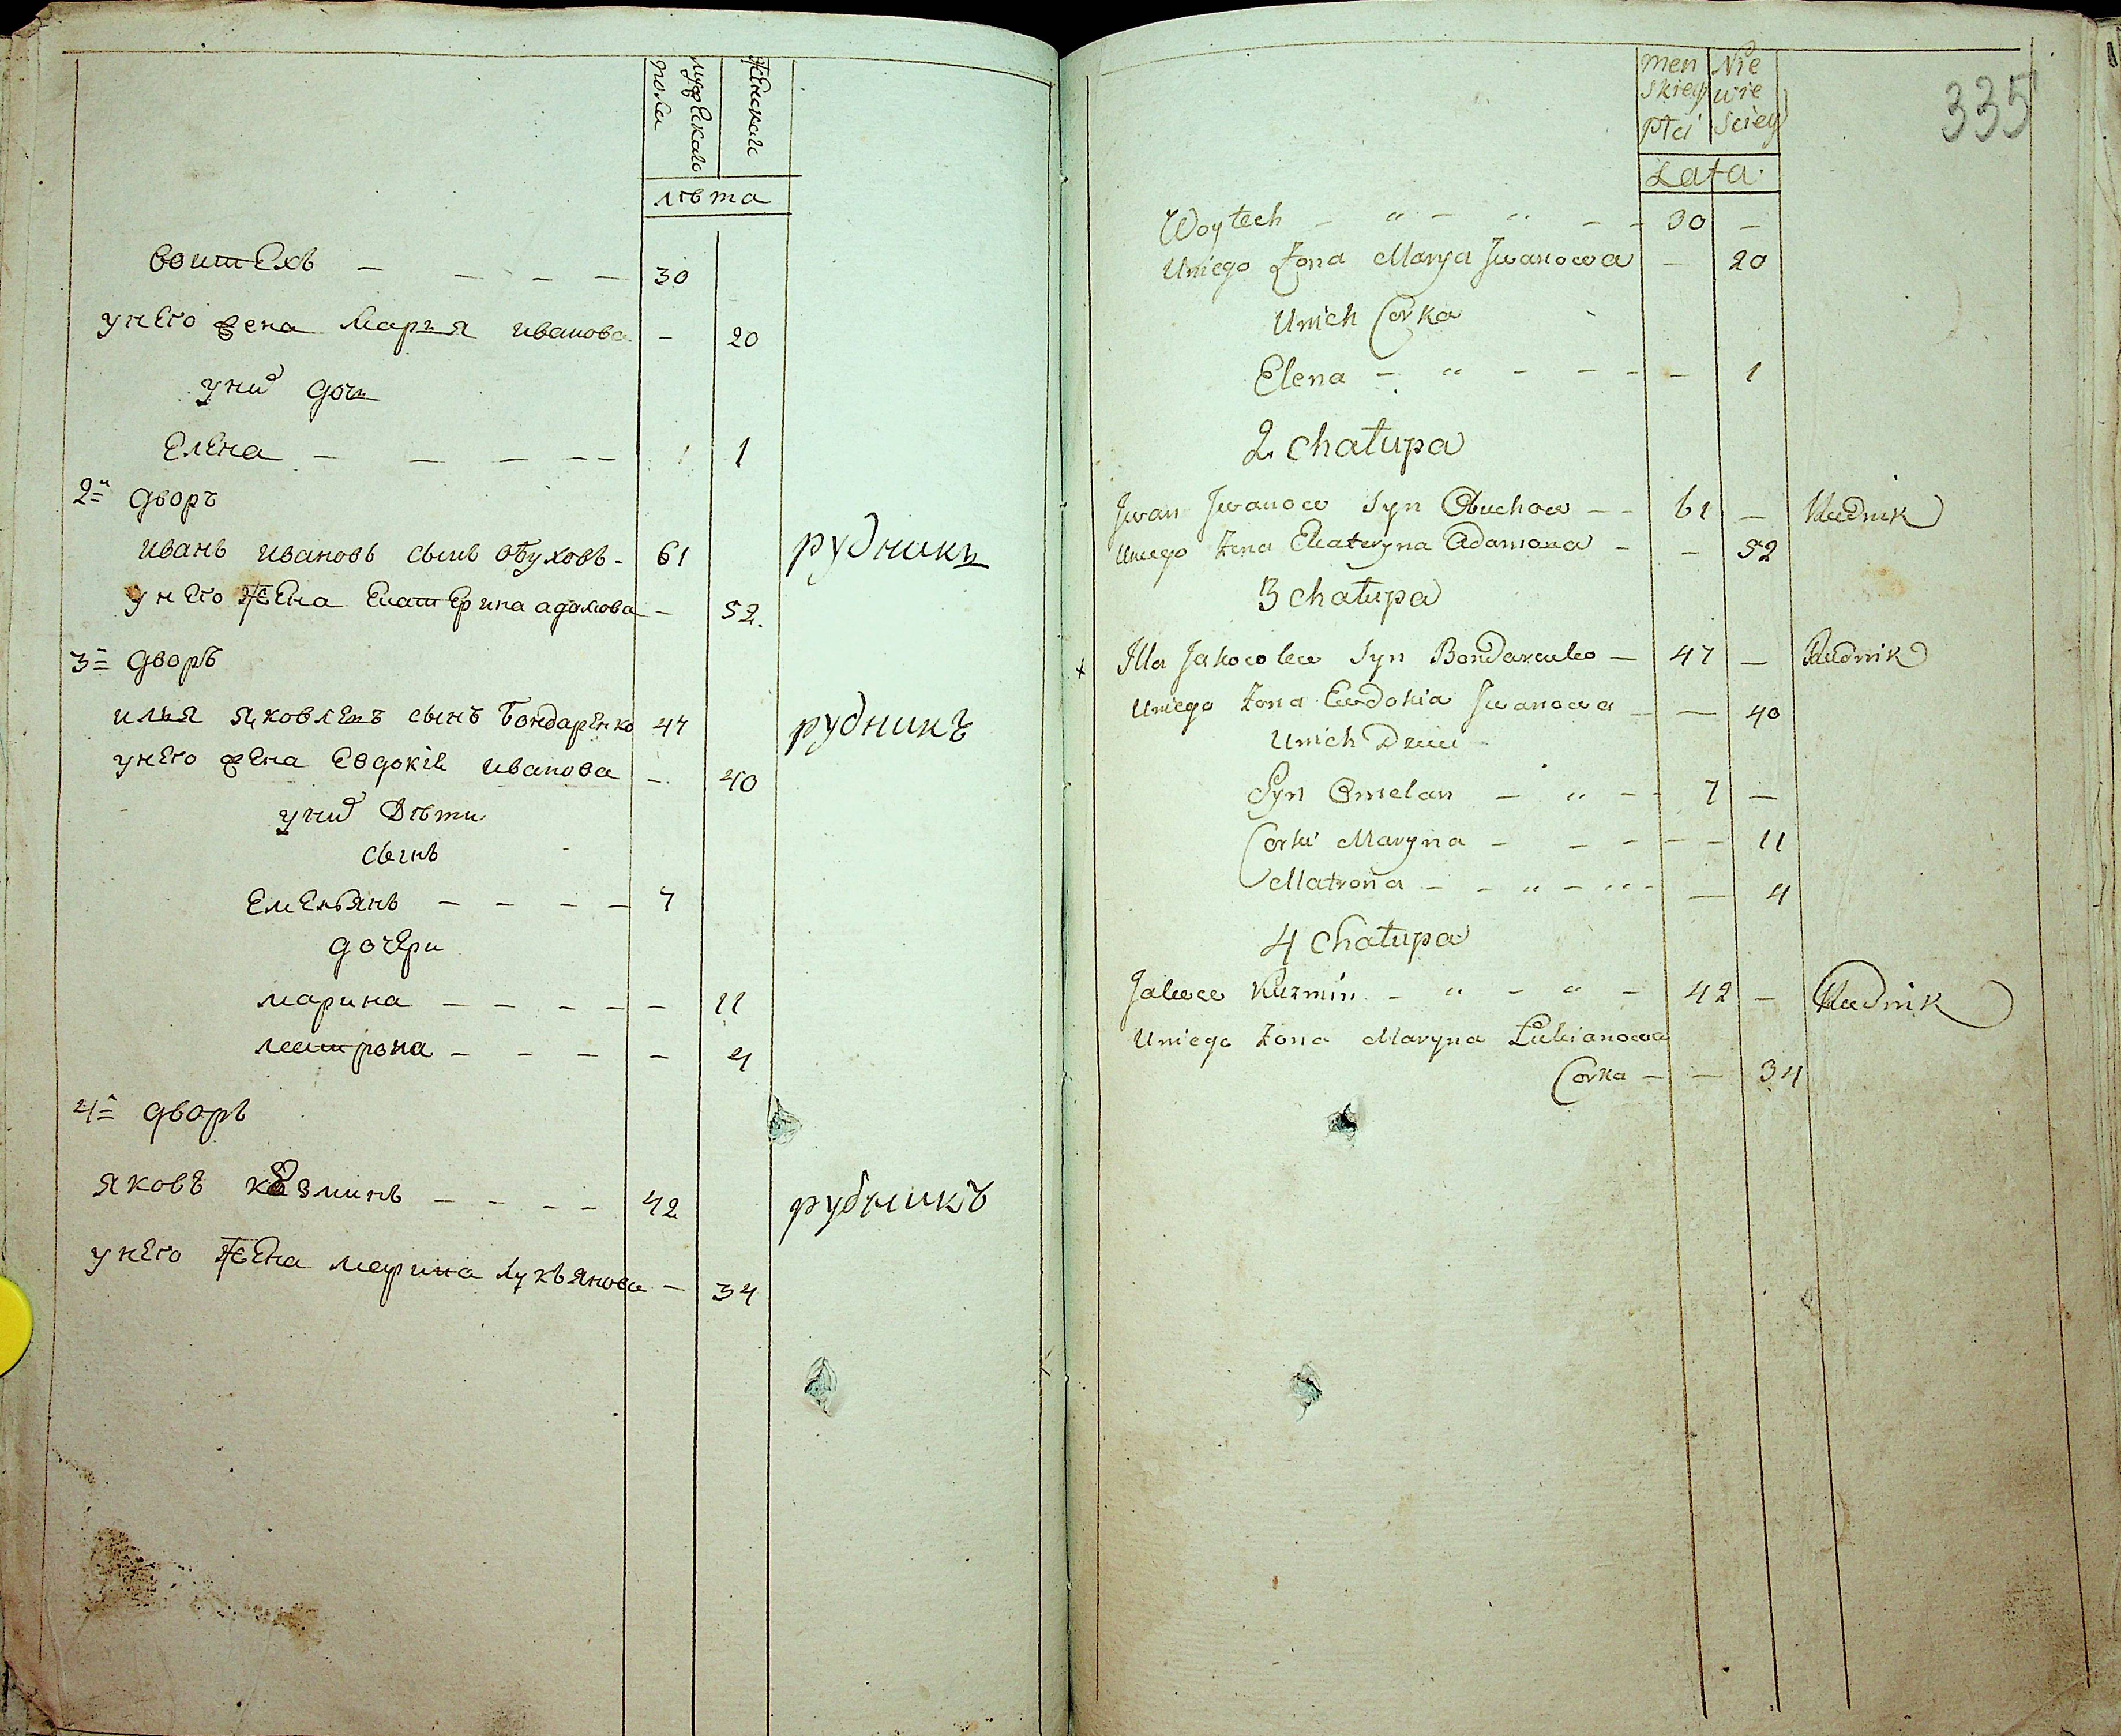 мужескаго
пола
женскаго
лѣта
воитехъ — — — — 30
унего жена Марья иванова — 20
уних дочь
Елена — — — — — 1
2й дворъ
иванъ ивановъ сынъ обуховъ - 61 рудникъ
унего жена Екатерина адамова — 52.
3й дворъ
илья яковлевъ сынъ Бондаренко 47 рудникъ
унего жена Евдокія иванова — 40
уних Дѣти
сынъ
Емельянъ — — — — 7
дочери
марина — — — — — 11
матрона — — — — 4
4й дворъ
яковъ кузминъ — — — — 42 рудникъ
унего жена марина лукьянова — 34
335
men Nie
skiey wie
Płci sciey
Lata
Woytech — „ — „ — — 30 —
Uniego Żona Marya Jwanowa — 20
Unich Corka
Elena — „ — — — — 1
2 chałupa
Jwan Jwanow Syn Obuchow — — 61 — Rudnik
Uniego Żona Ekateryna Adamowa — — 52
3 chałupa
x Illa Jakowlew Syn Bondarenko — 47 — Rudnik
Uniego Żona Ewdokia Jwanowa — — 40
Unich Dzieci
Syn Omelan — „ — — 7 —
Corki Maryna — — — — — 11
Matrona — — „ — „ — — 4
4 Chałupa
Jakow Kuzmin — „ — „ — 42 — Rudnik
Uniego Żona Maryna Łukianowa
Corka — — 34